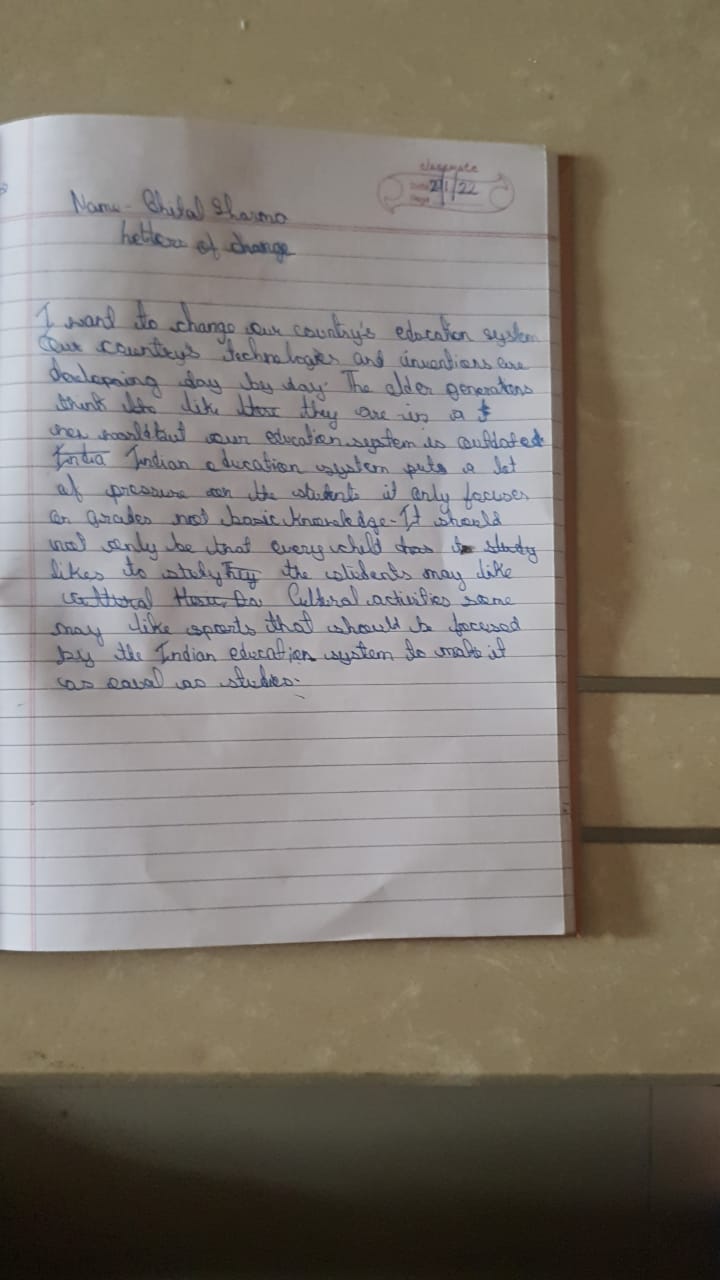 classmate
Date 2/1/22
Page
Name - Chital Sharma
Letters of change
I want to change our country's education system
Our country's technologies and inventions are
developing day by day. The older generations
think like they are in a
new world but our education system is outdated
India Indian education system puts a lot
of pressure on the students it only focuses
on grades not basic knowledge. It should
not only be that every child has to study
likes to study the students may like
cultural Cultural activities some
may like sports that should be focused
by the Indian education system to make it
as equal as studies.